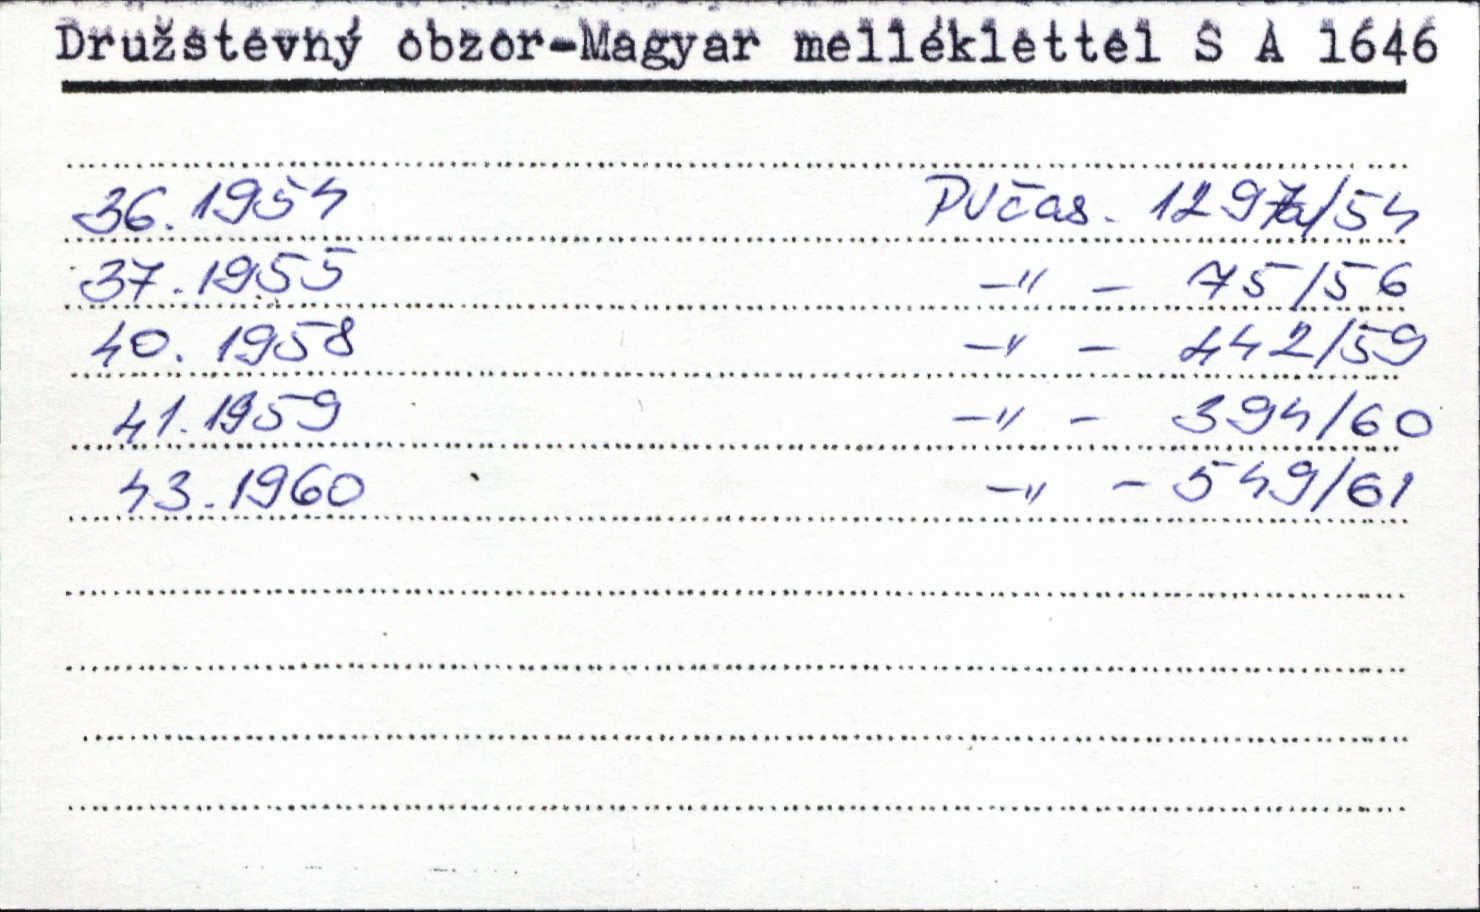 Družstevný obzor-Magyar melléklettel S A 1646
36. 1954 PVčas. 1297a/54
37. 1955 -"- 75/56
40. 1958 -"- 442/59
41. 1959 -"- 394/60
43. 1960 -"- 549/61